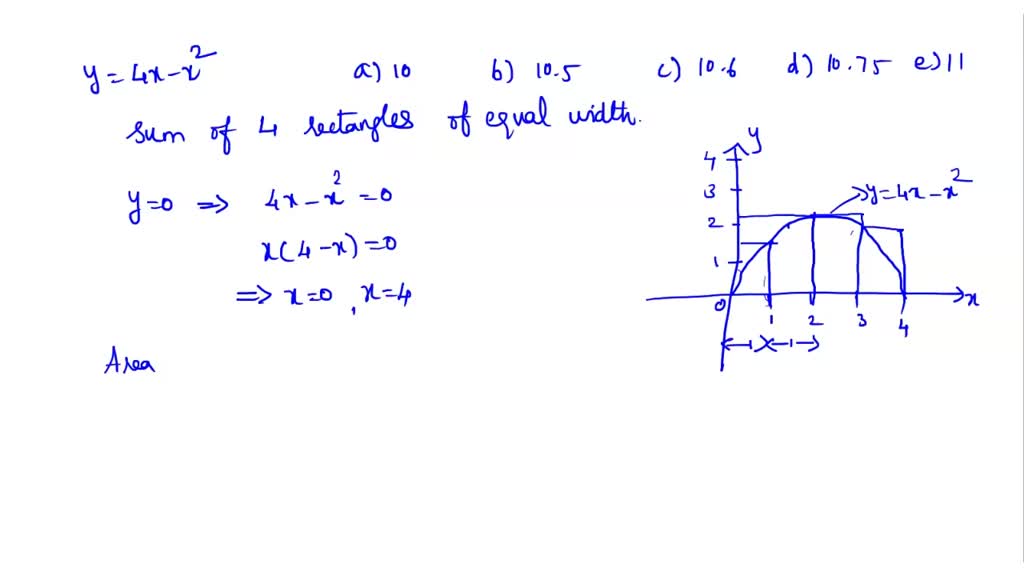 y = 4x - x² a) 10 b) 10.5 c) 10.6 d) 10.75 e) 11
sum of 4 rectangles of equal width.
y=0 ⇒ 4x - x² = 0
x(4-x) = 0
⇒ x=0, x=4
Area
y
4
3
2
1
0
y=4x-x²
1 2 3 4
x
1 1